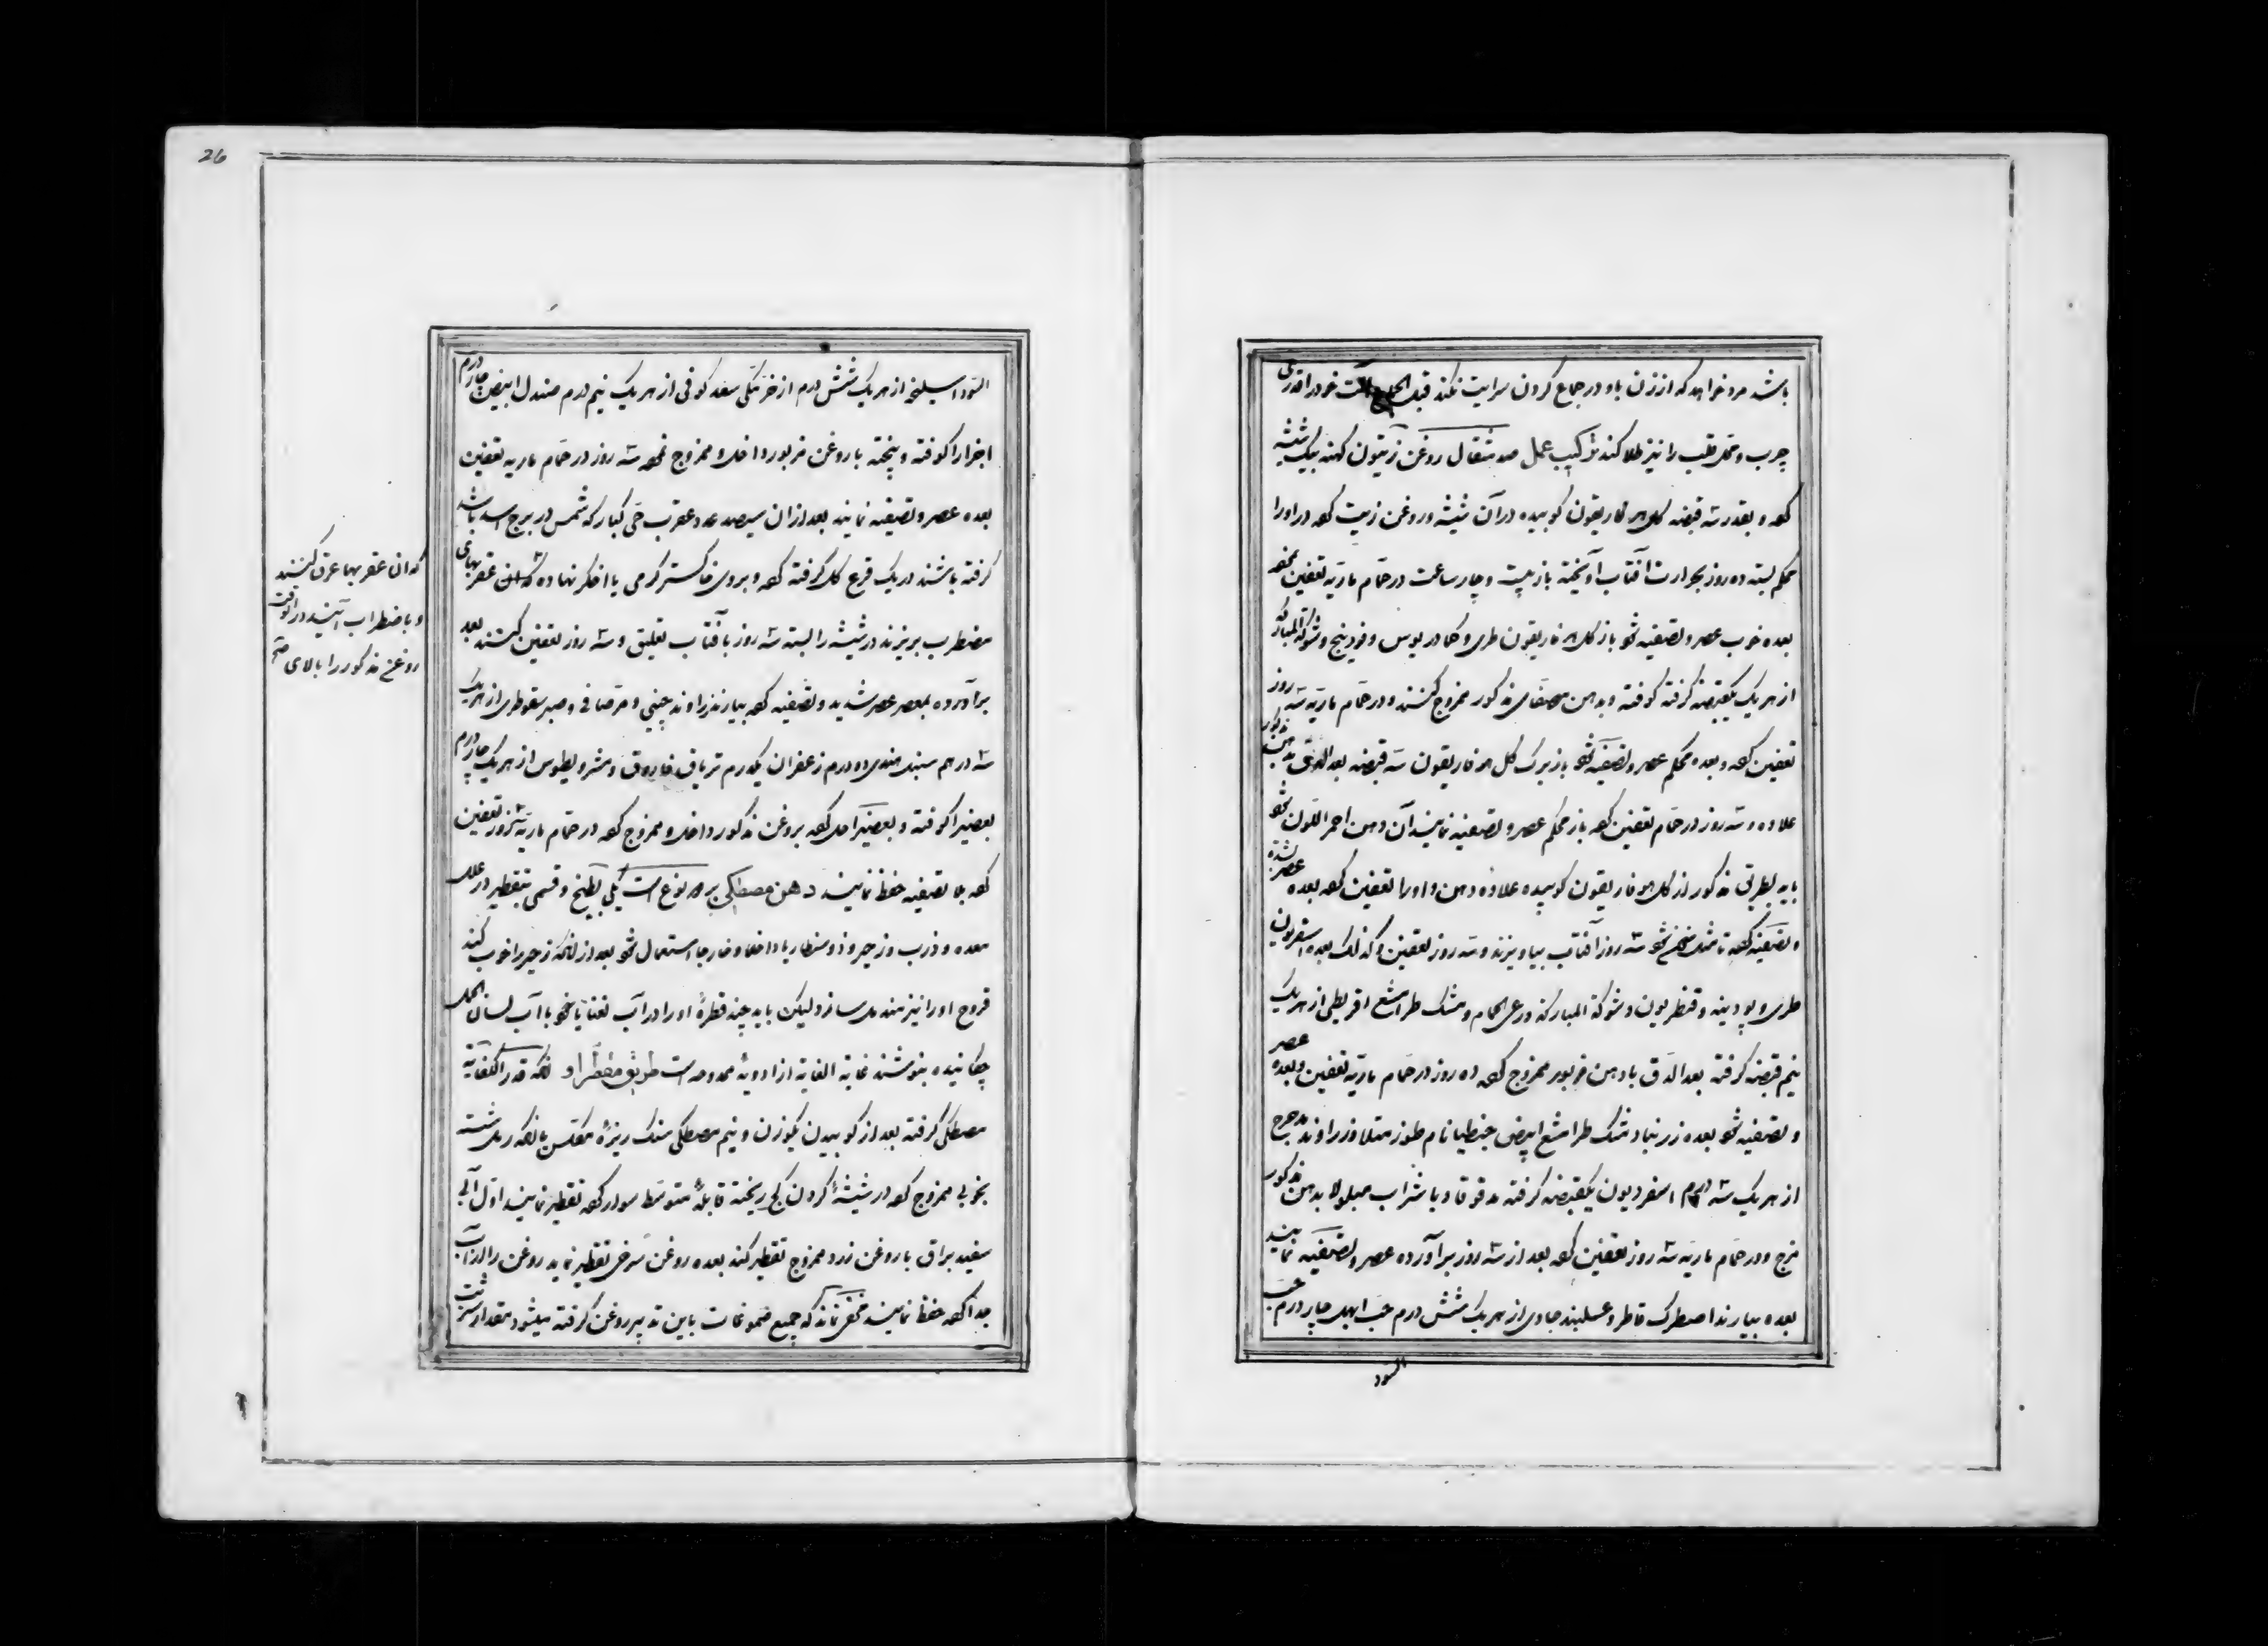 باشد مرد خواهد که از زن باو در جماع کردن سرایت نکند قبل الجماع آلت خود را قدری
چرب و محل قلب را نیز طلا کند ترکیب عمل صد مثقال روغن زیتون کهنه بیک شیشه
کرده و بقدر سه قبضه کل هوفاریقون کوبیده در آن شیشه و روغن زیت کرده در او را
محکم بسته ده روز بحرارت آفتاب آویخته باز بیست و چار ساعت در حمام ماریه تعفین نموده
بعده خوب عصر و تصفیه نمو باز کل هوفاریقون طری و کمادریوس و فودینج و شوکة المبارکه
از هر یک یکقبضه کرفته کوفته و بدهن مصفای مذکور ممزوج کنند و در حمام ماریه سه روز
تعفین کرده و بعده محکم عصر و تصفیه نمو باز برک کل هوفاریقون سه قبضه بعد الدق بدهن مذکور
علاوه و سه روز در حمام تعفین کرده باز محکم عصر و تصفیه نمایند آن دهن احمر اللون شو
باید بطریق مذکور از کل هوفاریقون کوبیده علاوه دهن و او را تعفین کرده بعده عصر شده
و تصفیه کرده تا شمک سخ شو سه روز آفتاب بیاویزند و سه روز تعفین کذلک بعده اسقردیون
طری و پودینه و قنطریون و شوکة المبارکه و رعی الحمام و مشک طرامشع اقریطی از هر یک
نیم قبضه کرفته بعد الدق با دهن مزبور ممزوج کرده ده روز در حمام ماریه تعفین و بعده عصر
و تصفیه نمو بعده زرنباد مشک طرامشع ابیض جنطیانا م طوز متلا و زراوند مدحرج
از هر یک سه درم اسقردیون یکقبضه کرفته مدقوقا و با شراب مبلولا بدهن مذکور
مزج و در حمام ماریه سه روز تعفین کرده بعد از سه روز برآورده عصر و تصفیه نمایند
بعده بیارند اصطرک قاطر و عسلبند جاوی از هر یک شش درم حب ابهل چار درم حب
السود
السودا سلیخه از هر یک شش درم اذخر مکی سعد کوفی از هر یک نیم درم صندل ابیض چار درم
اجزا را کوفته و بیخته با روغن مزبور داخل و ممزوج نموه سه روز در حمام ماریه تعفین
بعده عصر و تصفیه نمایند بعد از آن سیصد عدد عقرب حی کبار که شمس در برج اسد باشد
کرفته باشند در یک قرع کل کرفته کرده و بروی خاکستر کرمی یا اخکر نهاده که آن عقربهای
مضطرب بریزند در شیشه را بسته سه روز بآفتاب تعلیق و سه روز تعفین کنند بعد
برآورده بمعصر عصر شدید و تصفیه کرده بیارند زراوند چینی و مرصافی و صبر سقوطری از هر یک
سه درهم سنبل هندی ده درم زعفران یکدرم تریاق فاروق و مثرودیطوس از هر یک چار درم
بعضیرا کوفته و بعضیرا حل کرده بروغن مذکور داخل و ممزوج کرده در حمام ماریه سه روز تعفین
کرده بلا تصفیه حفظ نمایند دهن مصطکی بر دو نوع است یکی بطبخ و قسمی بتقطیر در علل
معده و ذرب و زحیر و ذوسنطاریا داخلا و خارجا استعمال نمو بعد از آنکه زحیر را خوب کند
قروح او را نیز مندمل سازد و لیکن باید چند قطرهٔ او را در آب نعنایا نمو با آب لسان الحمل
چکانیده بنوشند غایة الغایه از ادویهٔ ممدوحه است طریق مقطر او آنکه قدر الکفایه
مصطکی کرفته بعد از کوبیدن یکوزن و نیم مصطکی سنک ریزهٔ مکلس یا آنکه ریک شسته
بخوبی ممزوج کرده در شیشهٔ کردن کج ریخته قابلهٔ متوسط سودار کرده تقطیر نمایند اول آبی
سفید براق با روغن زرد ممزوج تقطیر کند بعده روغن سرخی تقطیر نماید روغن را از آب
جدا کرده حفظ نمایند مخفی نماند که جمیع صموغات باین تدبیر روغن کرفته میشود مقدار شربت
که آن عقربها عرق کنند
و باضطراب آیند در آنوقت
روغن مذکور را بالای صح
26